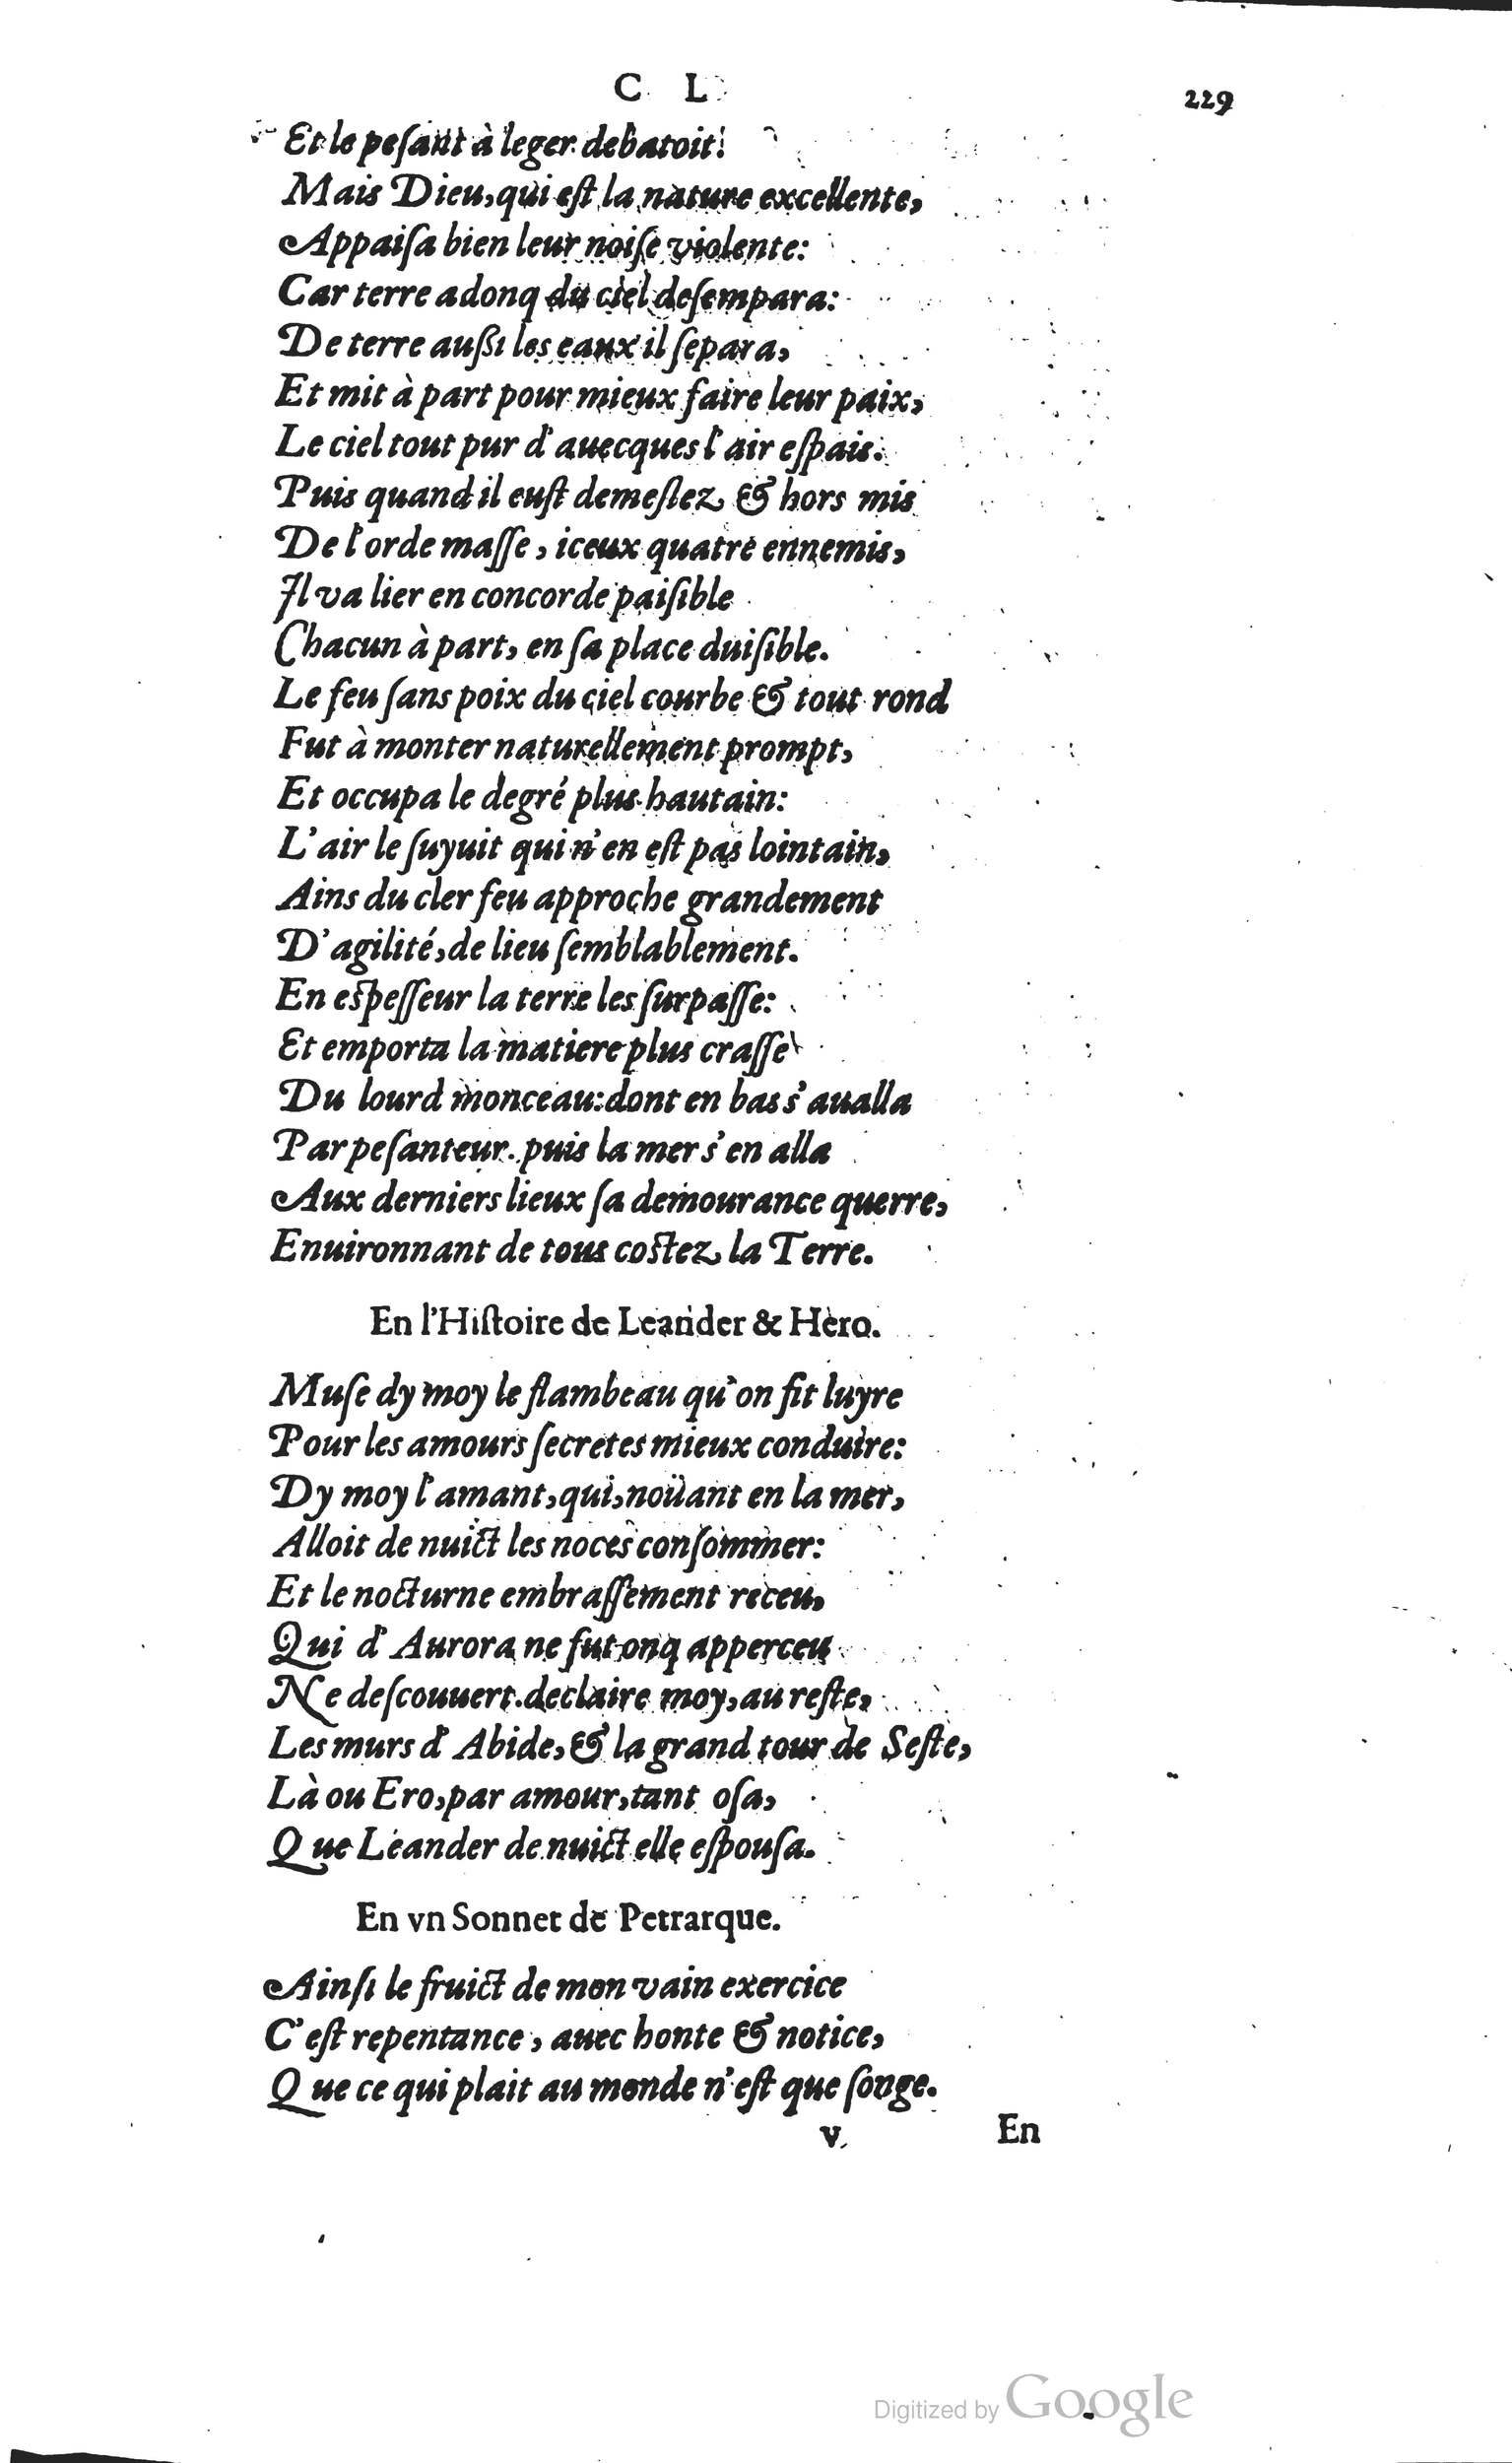 C L
229
Et le peſant à leger debatoit:
Mais Dieu, qui eſt la nature excellente,
Appaiſa bien leur noiſe violente:
Car terre adonq du ciel deſempara:
De terre außi les eaux il ſepara,
Et mit à part pour mieux faire leur paix,
Le ciel tout pur d'auecques l'air eſpais.
Puis quand il euſt demeſlez & hors mis
De l'orde maſſe, iceux quatre ennemis,
Il va lier en concorde paiſible
Chacun à part, en ſa place duiſible.
Le feu ſans poix du ciel courbe & tout rond
Fut à monter naturellement prompt,
Et occupa le degré plus hautain:
L'air le ſuyuit qui n'en eſt pas lointain,
Ains du cler feu approche grandement
D'agilité, de lieu ſemblablement.
En eſpeſſeur la terre les ſurpaſſe:
Et emporta la matiere plus craſſe
Du lourd monceau: dont en bas s'aualla
Par peſanteur. puis la mer s'en alla
Aux derniers lieux ſa demourance querre,
Enuironnant de tous coſtez la Terre.
En l'Hiſtoire de Leander & Hero.
Muſe dy moy le flambeau qu'on fit luyre
Pour les amours ſecretes mieux conduire:
Dy moy l'amant, qui, noüant en la mer,
Alloit de nuict les noces conſommer:
Et le nocturne embraſſement receu,
Qui d'Aurora ne fut onq apperceu
Ne deſcouuert. declaire moy, au reſte,
Les murs d'Abide, & la grand tour de Seſte,
Là ou Ero, par amour, tant oſa,
Que Leander de nuict elle eſpouſa.
En vn Sonnet de Petrarque.
Ainſi le fruict de mon vain exercice
C'eſt repentance, auec honte & notice,
Que ce qui plait au monde n'eſt que ſonge.
v
En
Digitized by Google